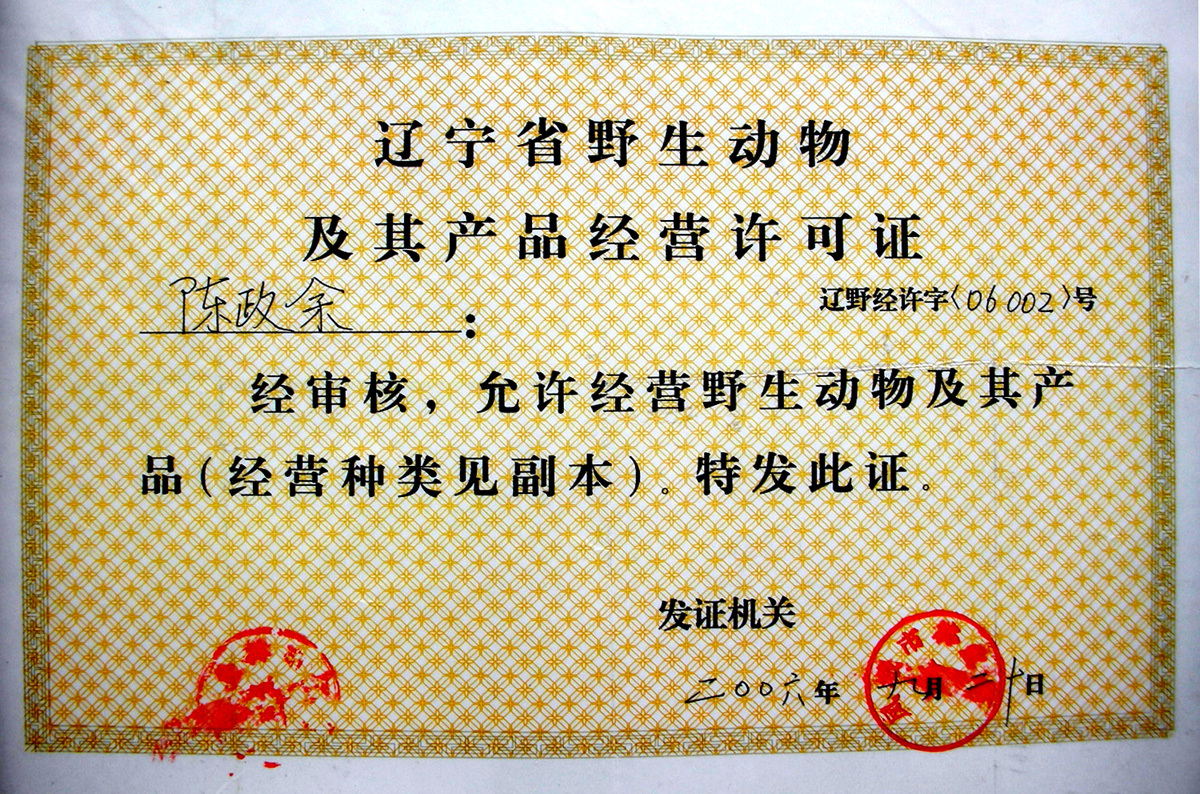 辽宁省野生动物
及其产品经营许可证
陈政余：
辽野经许字〈06002〉号
经审核，允许经营野生动物及其产
品（经营种类见副本）。特发此证。
发证机关
二00六年 九月二十日